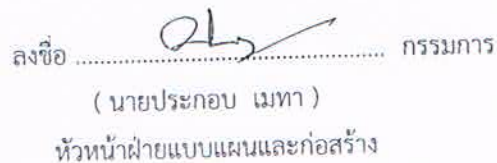 ลงชื่อ ................................................ กรรมการ
( นายประกอบ เมทา )
หัวหน้าฝ่ายแบบแผนและก่อสร้าง